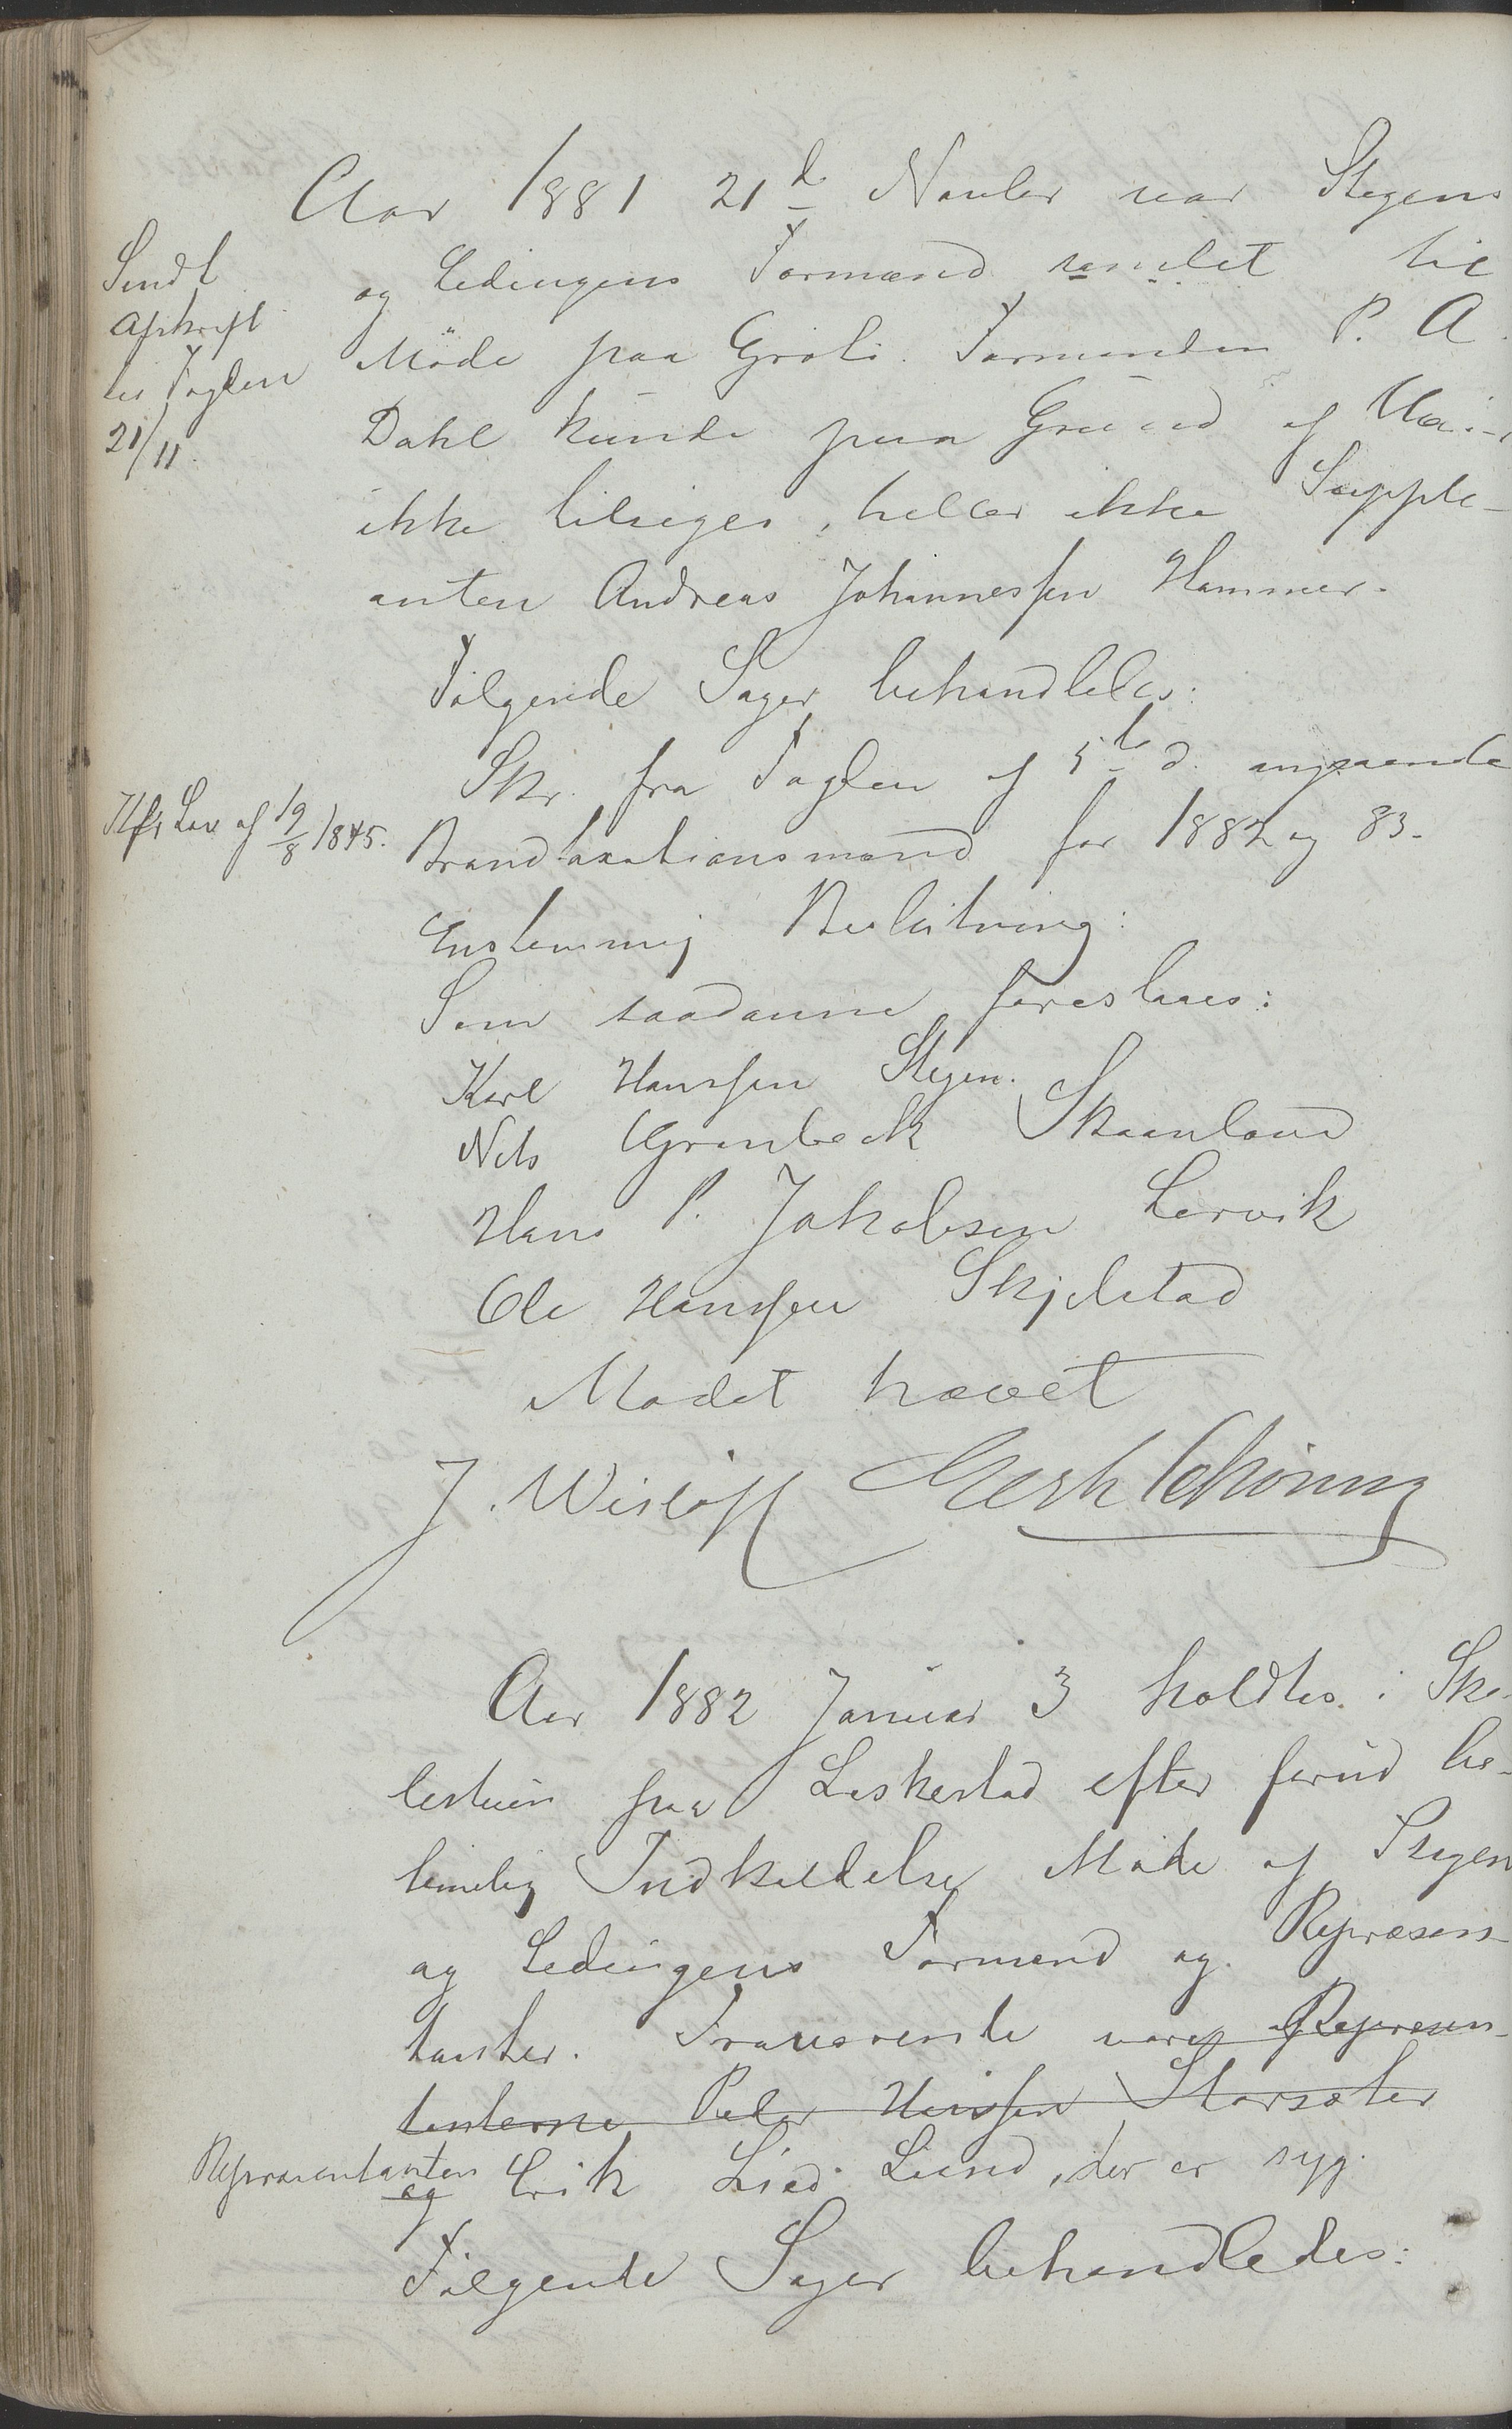 Aar 1881 21de Novbr var Stegens
og Ledingens Formænd samlet til
Møde paa Grøli. Formanden P. A.
Dahl kunde paa Grund af
ikke tilsiges, heller ikke Supple-
anten Andreas Johannessen Hammer.
Følgende Sager behandledes:
Skr. fra Fogden af 5te d. angaaende
Brandtaxationsmænd for 1882 og 83.
Enstemmig Beslutning:
Som saadanne foreslaaes:
Karl Hanssen Stegen.
Nils Grønbeck Skaanland
Hans P. Jakobsen Lervik
Ole Hanssen Skjelstad
Mødet hævet
J. Wisløff Gerh Schöning
Sendt
Afskrift
til Fogden
21/11.
Kfr. Lov af 19/8 1845.
Aar 1882 Januar 3 holdtes i Sko-
lestuen paa Leskestad efter forud be-
timelig Indkaldelse Møde af Stegen
og Ledingens Formænd og Repræsen-
tanter. Fraværende var Repræsen-
tanterne Peder Hanssen Storsæter
Repræsentanten og Erik Lind Lund, der er syg.
Følgende Sager behandledes: